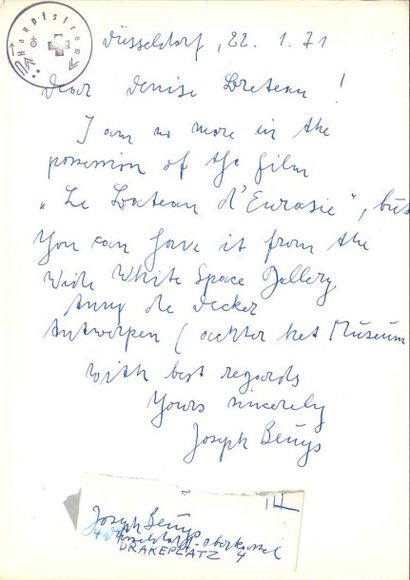 Hauptstrom
Düsseldorf, 22. 1. 71
Dear Denise Breteau !
I am no more in the
possession of the film
„Le Bateau d'Eurasie", but
You can have it from the
Wide White Space Gallery
Anny de Decker
Antwerpen ( achter het Museum
with best regards
Yours sincerely
Joseph Beuys
Joseph Beuys
4 Düsseldorf-Oberkassel
DRAKEPLATZ 4